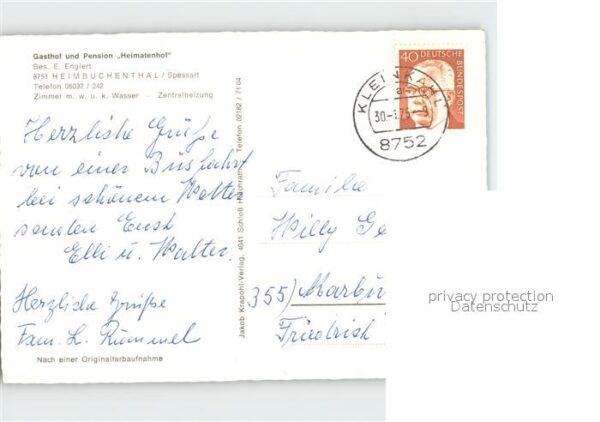 Gasthof und Pension „Heimatenhof"
Bes. E. Englert
8751 HEIMBUCHENTHAL / Spessart
Telefon 06092 / 242
Zimmer m. w. u. k. Wasser - Zentralheizung
Herzliche Grüße
von einer Busfahrt
bei schönem Wetter
senden Euch
Elli u. Walter.
Herzliche Grüße
Fam. L. Rümmel
Nach einer Originalfarbaufnahme
Jakob Krapohl-Verlag, 4041 Schloß Hülchrath, Telefon 02182 / 7104
40 DEUTSCHE BUNDESPOST
KLEINKAHL
8752
Familie
Willy Ge
355) Marbu
Friedrich
privacy protection
Datenschutz